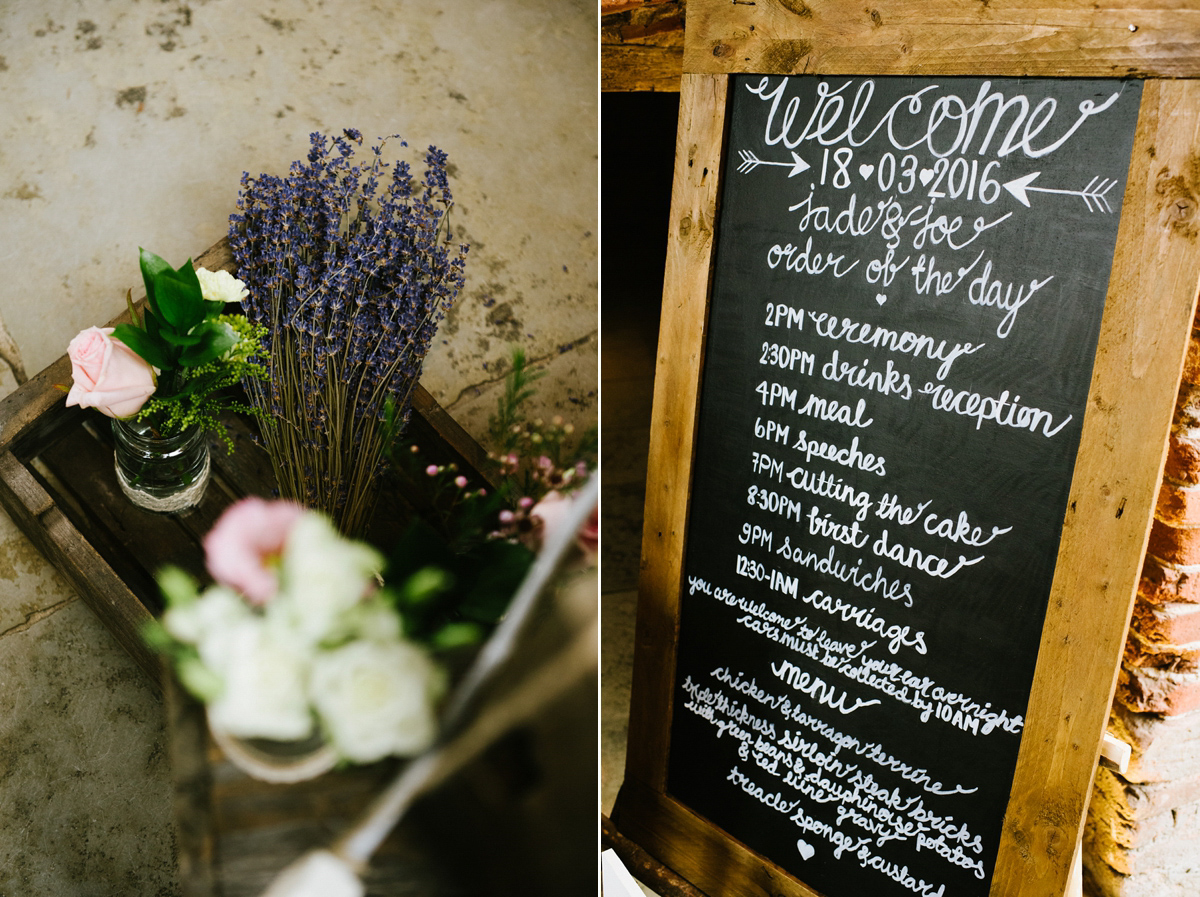 Welcome
18 ♥ 03 ♥ 2016
jade & joe
order of the day
2PM ceremony
2:30PM drinks reception
4PM meal
6PM speeches
7PM cutting the cake
8:30PM first dance
9PM sandwiches
12:30-1AM carriages
you are welcome to leave your car overnight
cars must be collected by 10AM
menu
chicken & tarragon terrine
triple thickness sirloin steak bricks
with green beans & dauphinoise potatos
& red wine gravy
treacle sponge & custard